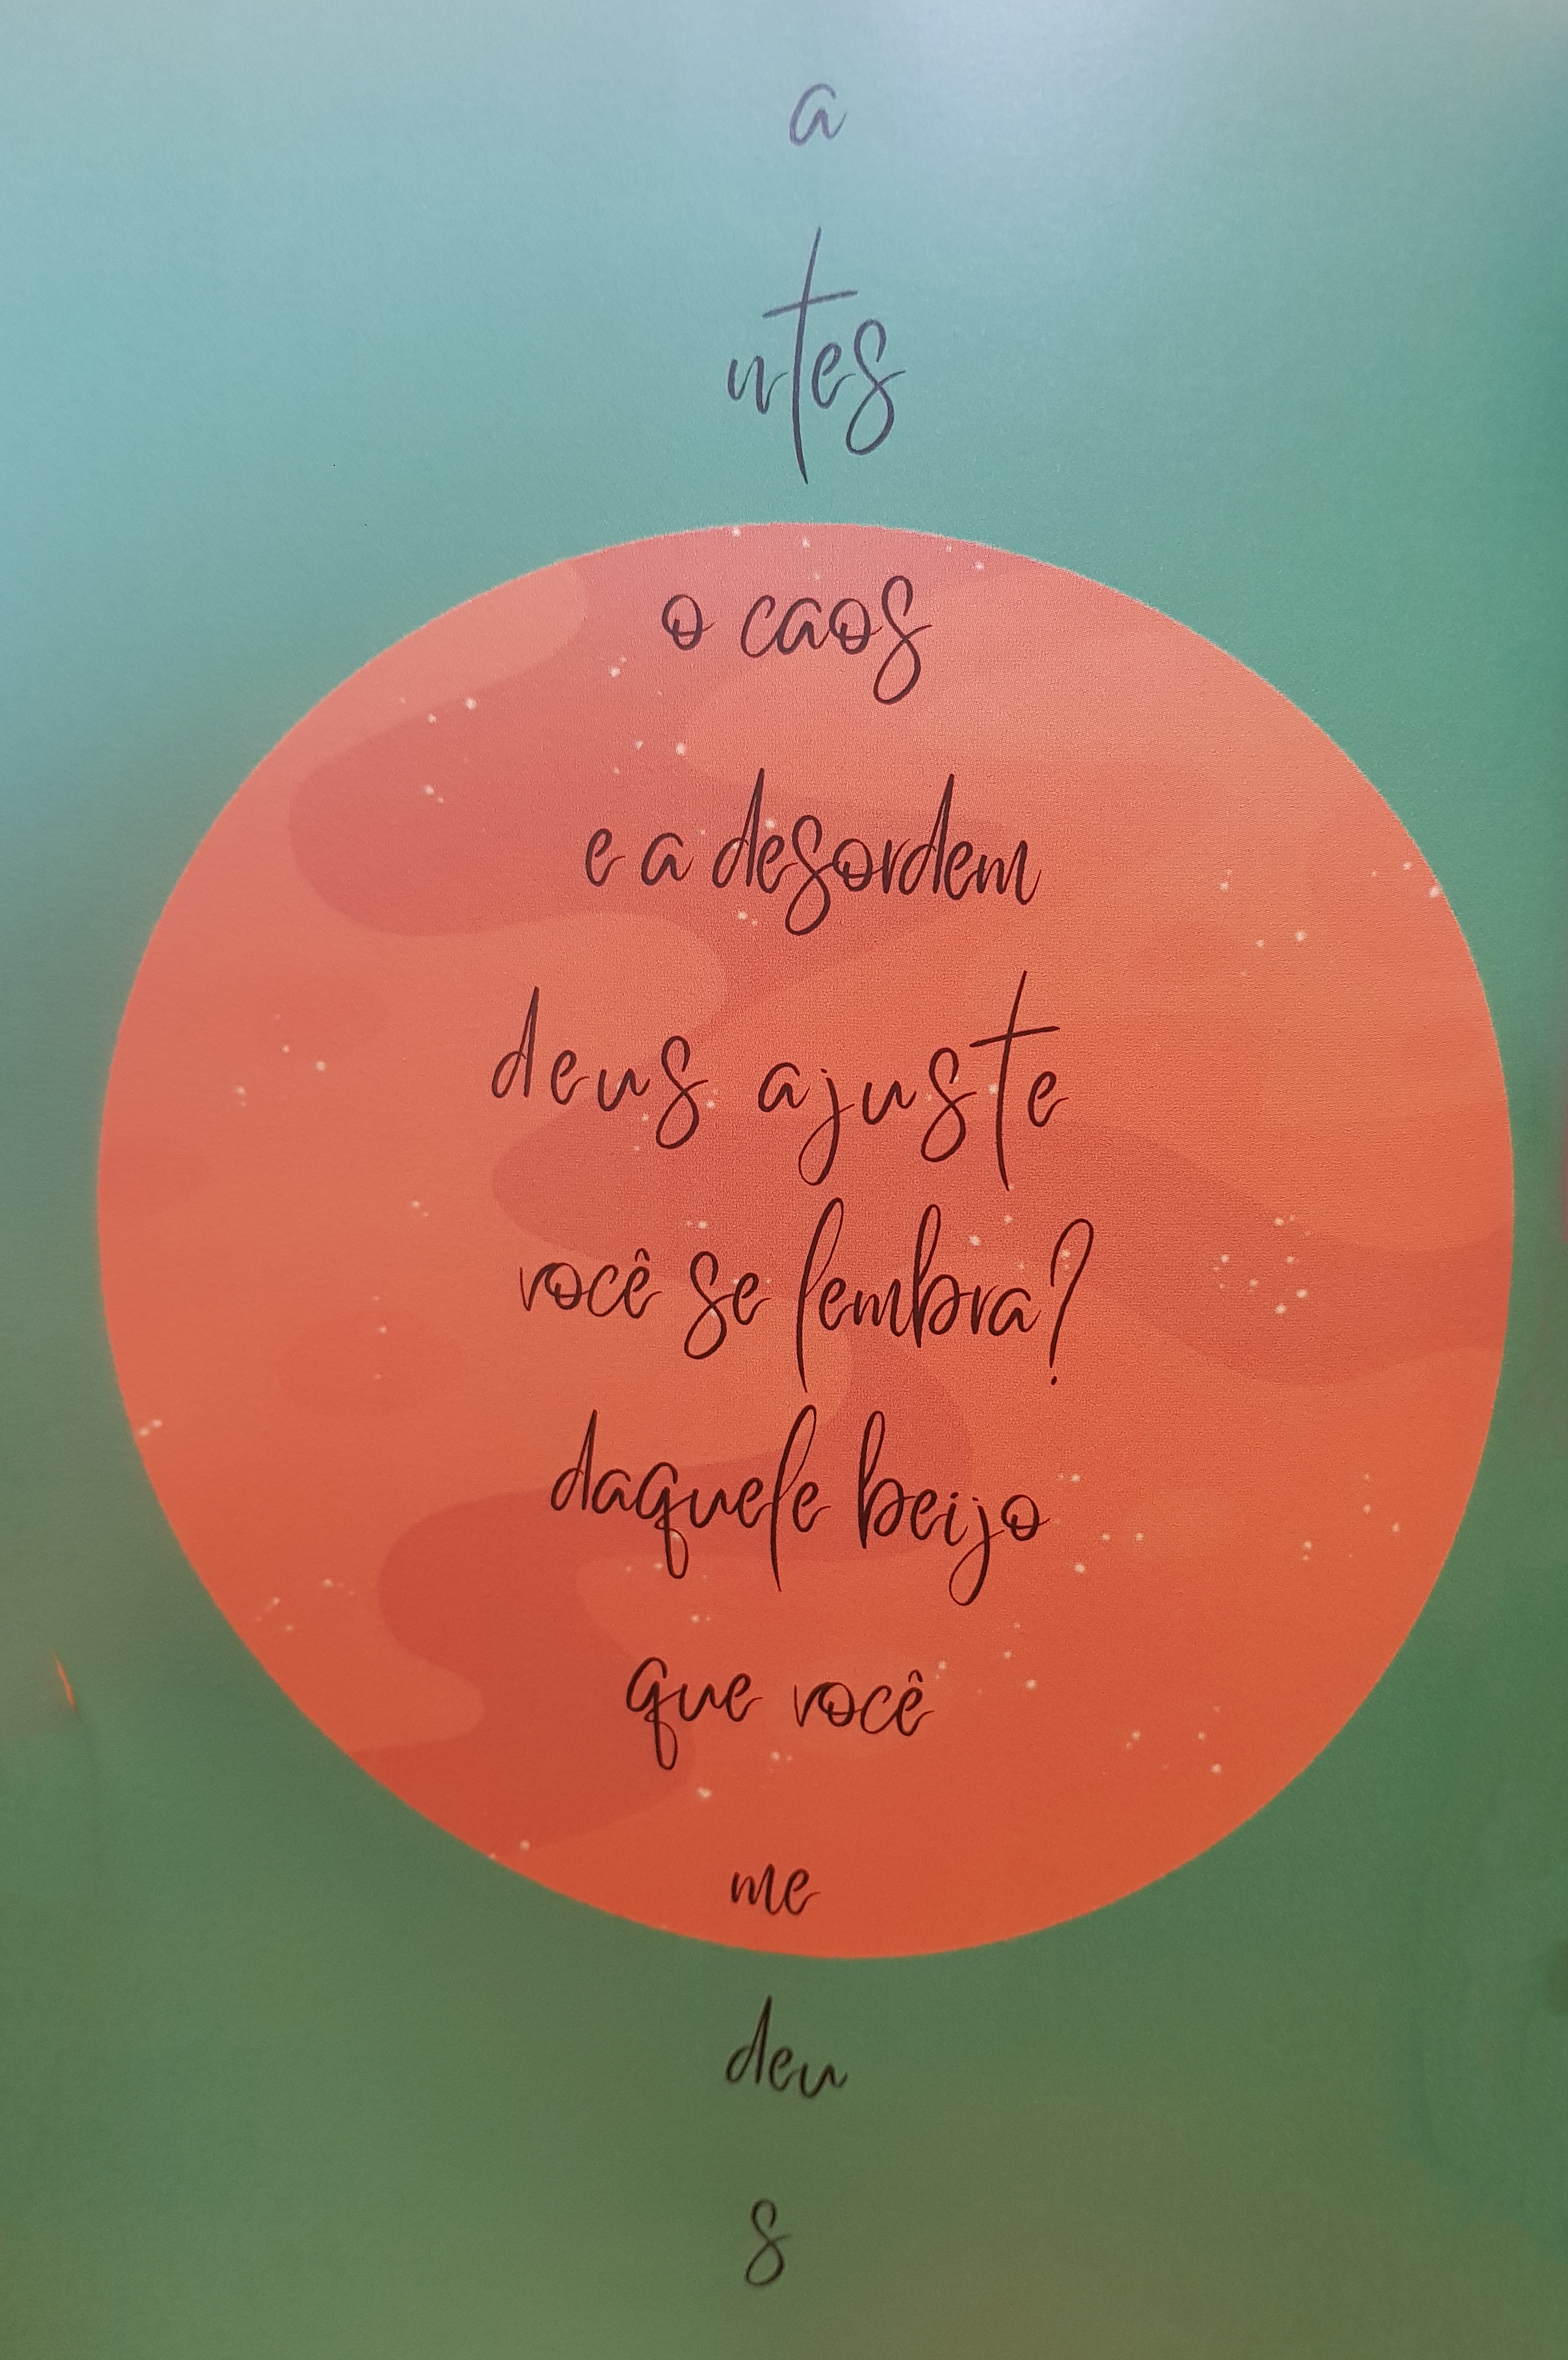 a
ntes
o caos
e a desordem
deus ajuste
você se lembra?
daquele beijo
que você
me
deu
s